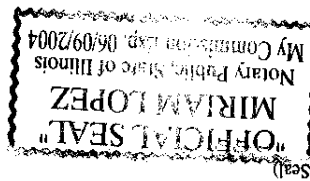 (Seal)
"OFFICIAL SEAL"
MIRIAM LOPEZ
Notary Public, State of Illinois
My Commission Exp. 06/09/2004